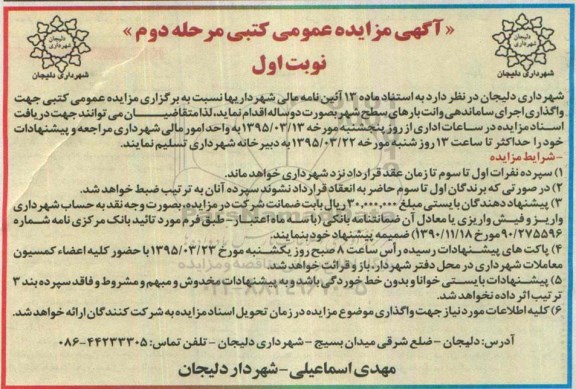 « آگهی مزایده عمومی کتبی مرحله دوم »
نوبت اول
دلیجان
شهرداری
شهرداری دلیجان
دلیجان
شهرداری
شهرداری دلیجان
شهرداری دلیجان در نظر دارد به استناد ماده ۱۳ آئین نامه مالی شهرداریها نسبت به برگزاری مزایده عمومی کتبی جهت
واگذاری اجرای ساماندهی وانت بارهای سطح شهر بصورت دوساله اقدام نماید، لذا متقاضیان می توانند جهت دریافت
اسناد مزایده در ساعات اداری از روز پنجشنبه مورخه ۱۳۹۵/۰۳/۱۳ به واحد امور مالی شهرداری مراجعه و پیشنهادات
خود را حداکثر تا ساعت ۱۳ روز شنبه مورخه ۱۳۹۵/۰۳/۲۲ به دبیرخانه شهرداری تسلیم نمایند.
-شرایط مزایده
۱) سپرده نفرات اول تا سوم تا زمان عقد قرارداد نزد شهرداری خواهد ماند.
۲) در صورتی که برندگان اول تا سوم حاضر به انعقاد قرارداد نشوند سپرده آنان به ترتیب ضبط خواهد شد.
۳) پیشنهاد دهندگان بایستی مبلغ ۳۰,۰۰۰,۰۰۰ ریال بابت ضمانت شرکت در مزایده، بصورت وجه نقد به حساب شهرداری
واریز و فیش واریزی یا معادل آن ضمانتنامه بانکی (با سه ماه اعتبار- طبق فرم مورد تائید بانک مرکزی نامه شماره
۹۰/۲۷۵۵۹۶ مورخ ۱۳۹۰/۱۱/۱۸) ضمیمه پیشنهاد خود بنمایند.
۴) پاکت های پیشنهادات رسیده رأس ساعت ۸ صبح روز یکشنبه مورخ ۱۳۹۵/۰۳/۲۳ با حضور کلیه اعضاء کمسیون
معاملات شهرداری در محل دفتر شهردار، باز و قرائت خواهد شد.
۵) پیشنهادات بایستی خوانا و بدون خط خوردگی باشد و به پیشنهادات مخدوش و مبهم و مشروط و فاقد سپرده بند ۳
ترتیب اثر داده نخواهد شد.
۶) کلیه اطلاعات مورد نیاز جهت واگذاری موضوع مزایده در زمان تحویل اسناد مزایده به شرکت کنندگان ارائه خواهد شد.
آدرس: دلیجان - ضلع شرقی میدان بسیج - شهرداری دلیجان - تلفن تماس: ۴۴۲۳۳۳۰۵-۰۸۶
مهدی اسماعیلی - شهردار دلیجان